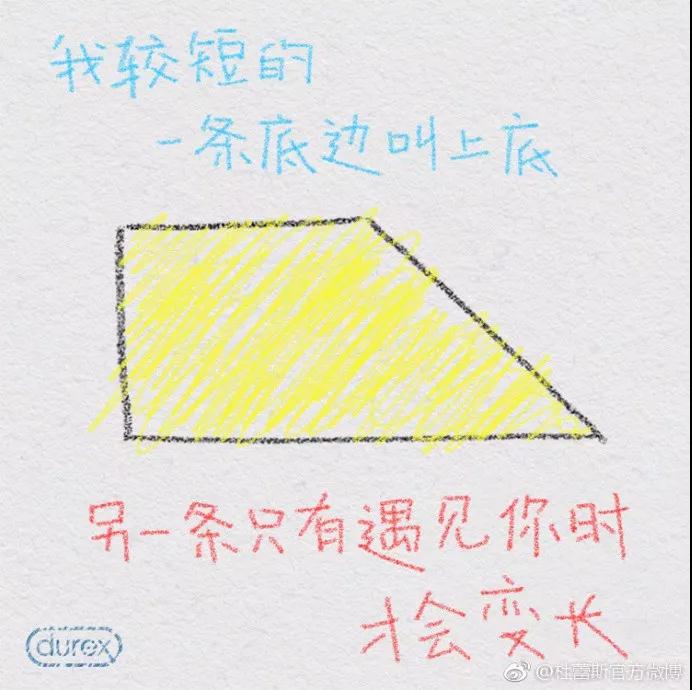 我较短的
一条底边叫上底
另一条只有遇见你时
才会变长
durex
@杜蕾斯官方微博